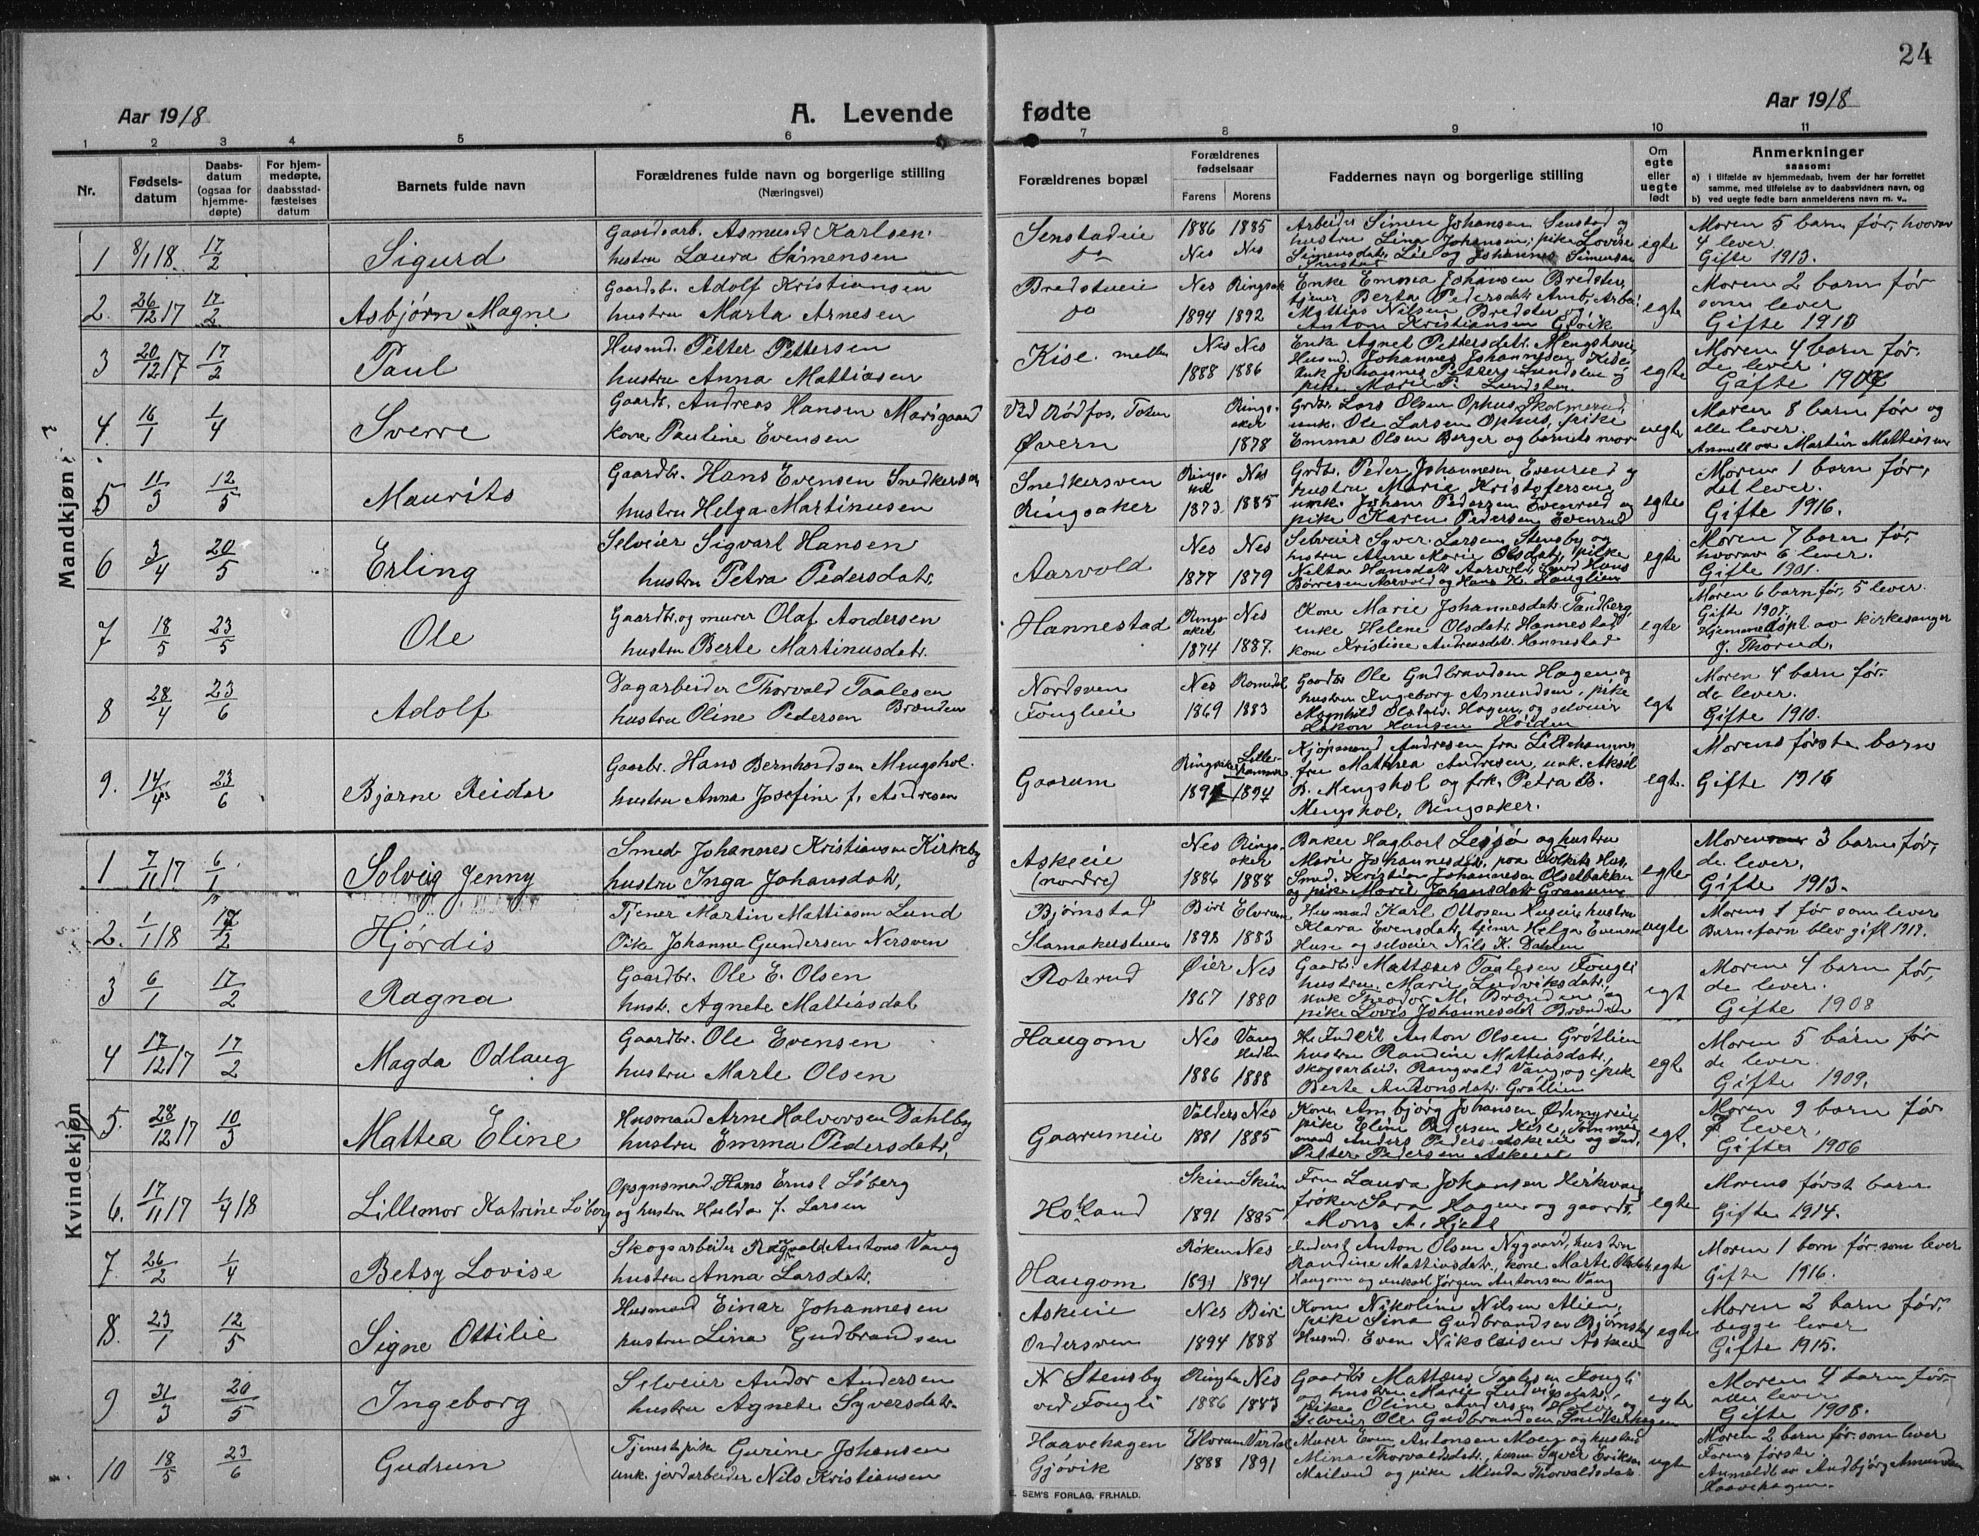 24
Aar 1918
A. Levende
fødte
Aar 1918
1 2 3 4 5 6 7 8 9 10 11
Nr.
Fødsels-
datum
Daabs-
datum
(ogsaa for
hjemme-
døpte)
For hjem-
medøpte,
daabsstad-
fæstelses
datum
Barnets fulde navn
Forældrenes fulde navn og borgerlige stilling
(Næringsvei)
Forældrenes bopæl
Forældrenes
fødselsaar
Farens Morens
Faddernes navn og borgerlige stilling
Om
egte
eller
uegte
født
Anmerkninger
saasom:
a) i tilfælde av hjemmedaab, hvem der har forrettet
samme, med tilføielse av to daabsvidners navn, og
b) ved uegte fødte barn anmelderens navn m. v.
Mandkjøn
1 8/1 18. 17/2 Sigurd
Gaardsarb. Asmund Karlsen
hustru Laura Simensen
Senstadeie
do
1886 1885
Nes Nes
Arbeider Simen Johansen Senstad og
hustru Lina Johansen, pike Lovise
Simensdatr. Lie og Johannes Simensen
Senstad
egte
Moren 5 barn før, hvorav
4 lever.
Gifte 1913.
2. 26/12 17 17/2 Asbjørn Magne
Gaardb. Adolf Kristiansen
hustru Marta Arnesen
Bredstueie
do
Nes Ringsak
1894 1892
Enke Emma Johansen Bredsten
tjener Berta Pedersdatr.
Mathias Nilsen Bredsten og
Anton Kristiansen Gjøvik
egte
Moren 2 barn før
som lever
Gifte 1910
3 20/12 17 17/2 Paul
Husmd. Petter Pettersen
hustru Anna Mattiasen
Kise mellem
Nes Nes
1888 1886
Enk. Agnet Pettersdatr.
Husmd. Johannes Johannesen Kise
Unk Johannes Petters. Lundsten og
pike Marie P. Lundsten
egte
Moren 4 barn før.
de lever.
Gifte
4. 16/1 1/4 Sverre
Gaardbr. Andreas Hansen Marigaard
Kone Pauline Evensen
Ved Rødfos, Toten
Øvern
Rings-
aker
1878
Grdbr. Lars Olsen Ophus,
unk. Ole Larsen Ophus, pike
Emma Olsen Berger og barnets mor
uegte
Moren 8 barn før og
alle lever.
Anmelt av Martin Mattiasen
5 11/3 12/5 Maurits
Gaardbr. Hans Evensen Snedkersven
hustru Helga Martinusen
Snedkersven
Ringsaker
Rings-
aker Nes
1873 1885
Grdbr. Peder Johannesen Evenrud og
hustru Marie Kristofersen
unk. Johan Pedersen Evenrud og
pike Karen Pedersen Evenrud
egte
Moren 1 barn før,
det lever.
Gifte 1916.
6 3/4 20/5 Erling
Selveier Sigvart Hansen
hustru Petra Pedersdatr.
Aarvold
Nes Nes
1877 1879
Selveier Syver Larsen Stensby og
hustru Anne Marie Olsdatr., pike
Nilla Hansdatr. Aarvold, Hans
Børresen Aarvold og Hans K. Hauglien
egte
Moren 7 barn før
hvorav 6 lever.
Gifte 1901.
7 18/5 23/5 Ole
Gaardbr. og murer Olaf Andersen
hustru Berte Martinusdatr.
Hannestad
Rings-
aker Nes
1874 1887.
Kone Marie Johannesdatr. Tandberg,
enke Helene Olsdatr. Hannestad
kone Kristine Andreasdatr. Hannestad
egte
Moren 6 barn før, 5 lever.
Gifte 1907.
Hjemmedøpt av Kirkesanger
J. Thorud.
8 28/4 23/6 Adolf
Dagarbeider Thorvald Taalesen
hustru Oline Pedersen Brænden
Nordsven
Fouglieie
Nes Romedal
1869 1883
Gaardbr Ole Gudbrandsen Hagen og
hustru Ingeborg Asmundsen, pike
Magnhild Olsdatr. Hagen og selveier
Haakon Hansen Høiden
egt
Moren 4 barn før.
de lever.
Gifte 1910.
9. 14/4 23/6 Bjarne Reidar
Gaardbr. Hans Bernhardsen Mengshol.
hustru Anna Josefine f. Andresen
Gaarum
Ringsaker Lille-
hammer
1894
Kjøpmand Andresen fra Lillehammer
fru Mathea Andresen, unk. Aksel
B. Mengshol og frk. Petra B.
Mengshol, Ringsaker.
egt.
Morens første barn
Gifte 1916
Kvindekjøn
1 7/11 17 6/1 Solveig Jenny
Smed Johannes Kristiansen Kirkeby
hustru Inga Johansdatr,
Askeie
(nordre)
Nes Rings-
aker
1886 1888
Baker Hagbart Lessø og hustru
Marie Johannesdatr., paa Folkets Hus,
Smed. Kristian Johannesen Olsetbakken
og pike Marie Johansdatr Granum
egte
Moren 3 barn før,
de lever,
Gifte 1913.
2. 1/1 18 17/2 Hjørdis
Tjener Martin Mattiasen Lund
Pike Johanne Gundersen Nersven
Bjørnstad
Slamakerstuen
Biri Elverum
1898 1883
Husmand Karl Ottosen Huseie, hustru
Klara Evensdatr, tjener Helga Evensen
Huse og selveier Nils K. Dahlen
uegte
Morens 1 før som lever
Barnefaren blev gift
3 6/1 17/2 Ragna
Gaardbr. Ole E. Olsen
hust. Agnete Mattiasdat
Roterud
Øier Nes
1867 1880
Gaardbr. Mattæus Taalesen Fougli
hustru Marie Ludviksdatr.,
unk Theodor M. Brænden og
pike Lovis Johannesdat Brænden
egt
Moren 4 barn før,
de lever.
Gifte 1908
4 17/12 17 17/2 Magda Odlaug
Gaardbr. Ole Evensen
hustru Marte Olsen
Haugom
Nes Vang
Heden
1886 1888
Anton Olsen Grøtlien
hustru Randine Mattiasdatr.,
skogsarbeid. Rangvald Vang, og pike
Berte Antonsdatr. Grøtlien
egt
Moren 5 barn før
de lever.
Gifte 1909.
5. 28/12 17 10/3 Mattea Eline
Husmand Arne Halvorsen Dahlby
hustru Emma Pedersdatr,
Gaarumeie
Valders Nes
1881 1885
Kone Ambjørg Johansen Ødemyreie
pike Eline Pedersen Kise,
Anders Pedersen Askeie og
Petter Pedersen Askeie
egt.
Moren 9 barn før
7 lever,
Gifte 1906
6. 17/11 17 1/4 18 Lillemor Katrine Løberg
Opsynsmand Hans Ernst Løberg
og hustru Hulda f. Larsen
Holland
Skien Skien
1891 1885
Fru Laura Johansen Kirkevang
frøken Sara Hagen og gaardbr.
Mons A. Hjell
egte
Morens først barn
Gifte 1914.
7. 26/2 1/4 Betsy Lovise
Skogsarbeider Ragvald Antons. Vang
hustru Anna Larsdatr,
Haugom
Røken Nes
1891 1894
Inderst Anton Olsen Nygaard, hustru
Randine Mattiasdatr, kone Marte Olsdatr.
Haugom og unkarl Jørgen Antonsen Vang
egte
Moren 1 barn før som lever
Gifte 1916.
8. 23/1 12/5 Signe Ottilie
Husmand Einar Johannesen
hustru Lina Gudbrandsen
Askeie
Ordersven
Nes Biri
1894 1888
Kone Nikoline Nilsen Alien,
pike Sina Gudbrandsen Bjørnstad
Husmd. Even Nikolaisen Askeie
egte
Moren 2 barn før,
begge lever
Gifte 1915.
9 31/3 20/5 Ingeborg
Selveier Andor Andersen
hustru Agnete Syversdatr.
N Stensby
ved Fougli
Ringsa Nes
1886 1883
Gaardbr Mattæus Taalesen Fougli
og hustru Marie Ludvigsdatr,
pike Oline Andersen og
Selveier Ole Gudbrandsen Snedkerhagen
egte
Moren 4 barn før
alle lever
Gifte 1908.
10 18/5 23/6 Gudrun
Tjenestepike Gurine Johansen
unk. jordarbeider Nils Kristiansen
Haavehagen
Gjøvik
Elverum Vardal
1888 1891
Murer Even Antonsen Moen og hustru
Mina Thorvaldsdatr, kone Syver Eriksen
Meilund og pike Minda Thorvaldsdatr.
uegte
Moren 2 barn før som lever
Farens første.
Anmeldt av Andbjørg Amundsen
Haavehagen.
SEM'S FORLAG, FR.HALD.